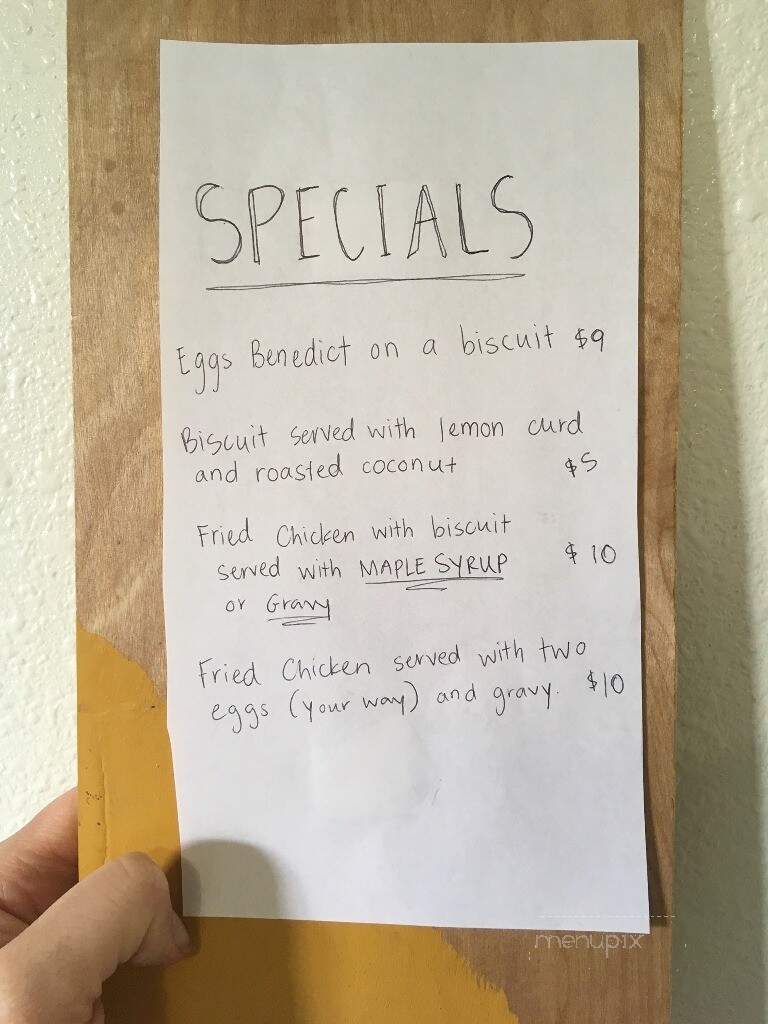 SPECIALS
Eggs Benedict on a biscuit $9
Biscuit served with lemon curd
and roasted coconut $5
Fried Chicken with biscuit
served with MAPLE SYRUP $10
or Gravy
Fried Chicken served with two
eggs (your way) and gravy. $10
menupix